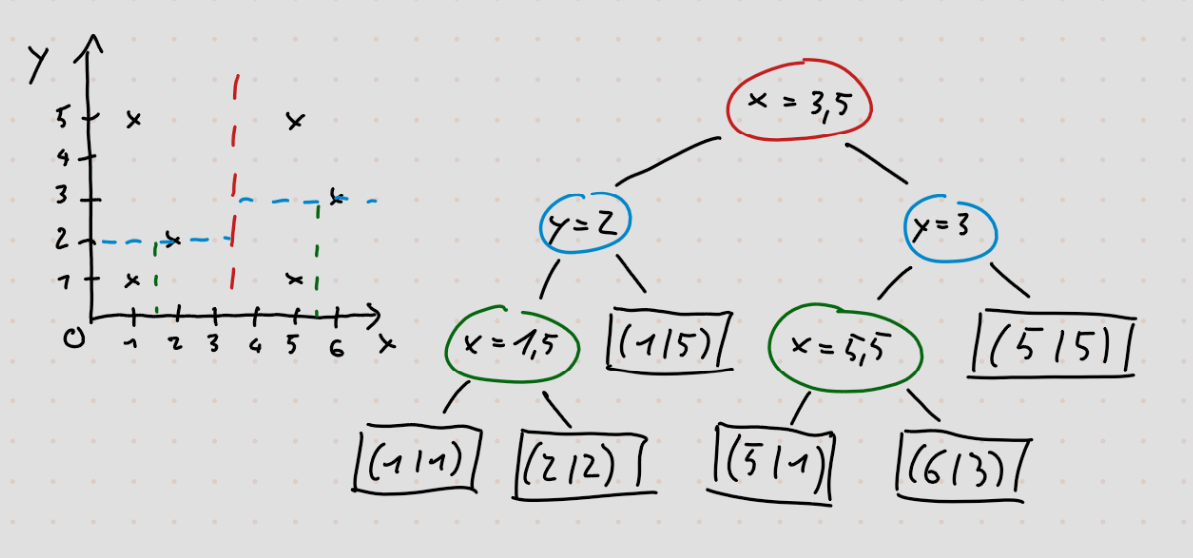 y
5
4
3
2
1
0 1 2 3 4 5 6 x
x = 3,5
y = 2
y = 3
x = 1,5
(1|5)
x = 5,5
(5|5)
(1|1)
(2|2)
(5|1)
(6|3)